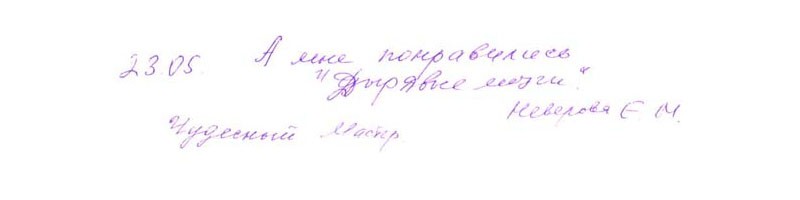 23.05. А мне понравились
"Дырявые мозги".
Неверова Е. М.
Чудесный